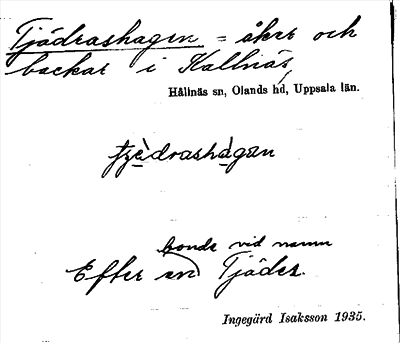 Tjädrashagen = åker och
backar i Kallnäs,
Hållnäs sn, Olands hd, Uppsala län.
tjèdrashàgan
bonde vid namn
Efter en Tjäder.
Ingegärd Isaksson 1935.